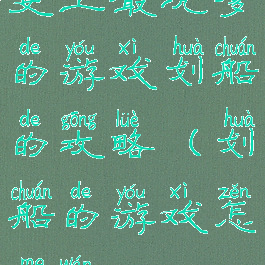 de yóu xì huà chuán
的游戏划船
de gōng lüè huà
的攻略（划
chuán de yóu xì zěn
船的游戏怎